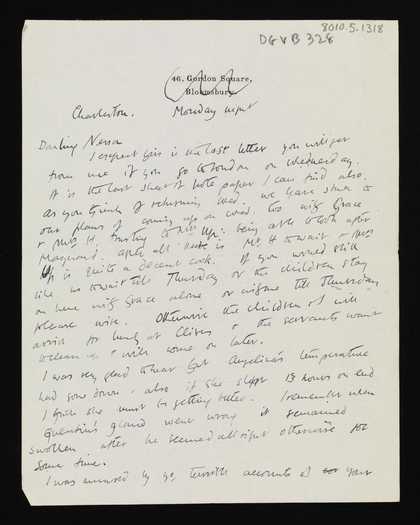 8010.5.1318
DGVB 328
46, Gordon Square,
Bloomsbury
Charleston. Monday night
Darling Nessa
I expect this is the last letter you will get
from me if you go to London on Wednesday.
It is the last sheet of note paper I can find also.
As you think of returning Wed. we have stuck to
our plans of coming up on Wed. too with Grace
& Mrs H. trusting to Mrs Up: being able to look after
Maynard. After all there is Mr H to wait & Mrs
Up is quite a decent cook. If you would still
like us to wait till Thursday or the children stay
on here with Grace alone or with me till Thursday
please wire. Otherwise the children & I will
arrive for lunch at Clives & the servants want
to clean up & will come on later.
I was very glad to hear that Angelica's temperature
had gone down & also if she slept 13 hours on end
I think she must be getting better. I remember when
Quentin's gland went wrong it remained
swollen after he seemed all right otherwise for
some time.
I was amused by yr terrible accounts of your